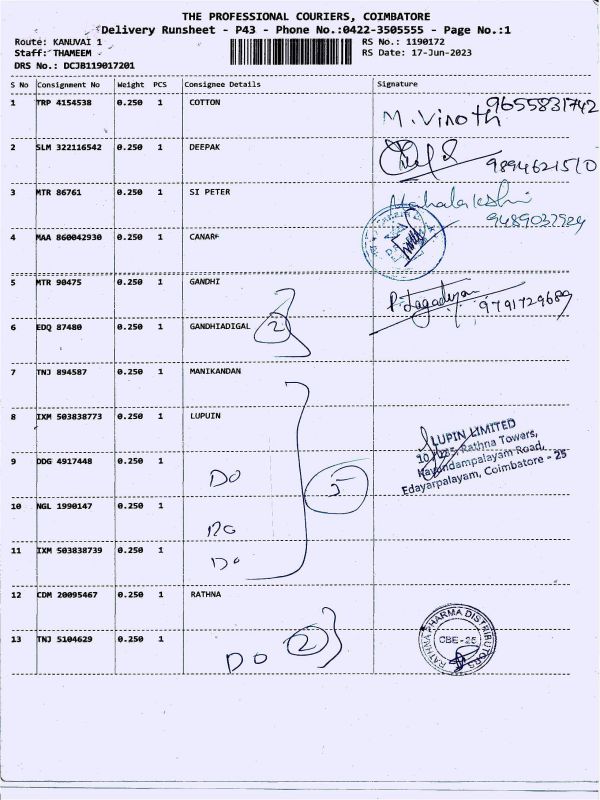 THE PROFESSIONAL COURIERS, COIMBATORE
Delivery Runsheet - P43 - Phone No.:0422-3505555 - Page No.:1
Route: KANUVAI 1
RS No.: 1190172
Staff: THAMEEM
RS Date: 17-Jun-2023
DRS No.: DCJB119017201
S No Consignment No Weight PCS Consignee Details Signature
1 TRP 4154538 0.250 1 COTTON
M. Vinoth 9655831742
2 SLM 322116542 0.250 1 DEEPAK
9894621510
3 MTR 86761 0.250 1 SI PETER
Mahalakshmi
9489037924
4 MAA 860042930 0.250 1 CANARF
5 MTR 90475 0.250 1 GANDHI
P. Jagadeesan 9791729689
6 EDQ 87480 0.250 1 GANDHIADIGAL 2
7 TNJ 894587 0.250 1 MANIKANDAN
8 IXM 503838773 0.250 1 LUPUIN
LUPIN LIMITED
Rathna Towers,
Kavundampalayam Road,
Edayarpalayam, Coimbatore - 25
9 DDG 4917448 0.250 1 DO 5
10 NGL 1990147 0.250 1 DO
11 IXM 503838739 0.250 1 DO
12 CDM 20095467 0.250 1 RATHNA
13 TNJ 5104629 0.250 1 DO 2
RATHNA PHARMA DISTRIBUTORS
CBE-25